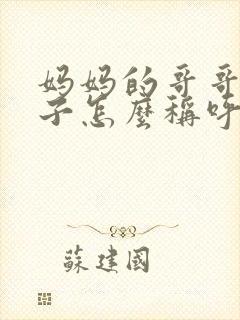 妈妈的哥哥
子怎麼稱呼
蘇建國